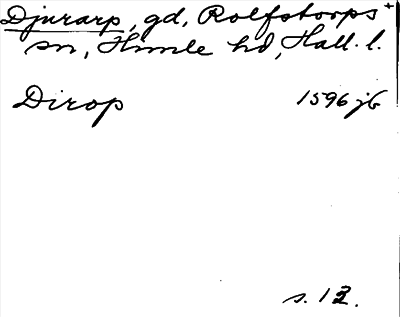 Djurarp, gd, Rolfstorps +
sn, Himle hd, Hall. l.
Dirop 1596 jb
s. 12.